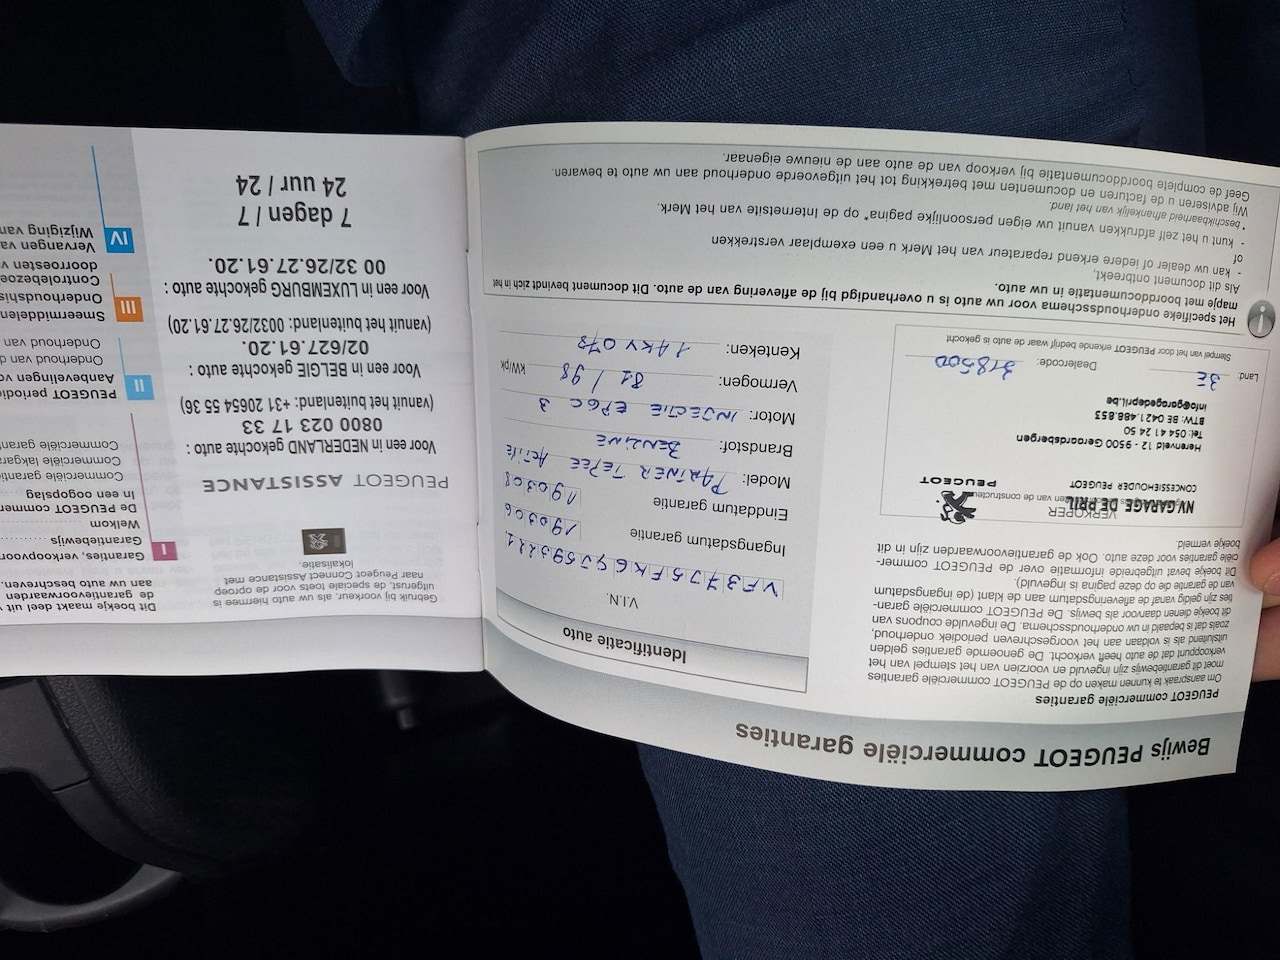 Bewijs PEUGEOT commerciële garanties
PEUGEOT commerciële garanties
Om aanspraak te kunnen maken op de PEUGEOT commerciële garanties
moet dit garantiebewijs zijn ingevuld en voorzien van het stempel van het
verkooppunt dat de auto heeft verkocht. De genoemde garanties gelden
uitsluitend als is voldaan aan het voorgeschreven periodiek onderhoud,
zoals dat is bepaald in uw onderhoudsschema. De ingevulde coupons van
dit boekje dienen daarvoor als bewijs. De PEUGEOT commerciële garan-
ties zijn geldig vanaf de afleveringsdatum aan de klant (de ingangsdatum
van de garantie die op deze pagina is ingevuld).
Dit boekje bevat uitgebreide informatie over de PEUGEOT commer-
ciële garanties voor deze auto. Ook de garantievoorwaarden zijn in dit
boekje vermeld.
VERKOPER
NV. GARAGE DE PRIL
CONCESSIEHOUDER PEUGEOT
PEUGEOT
Herenveld 12 - 9500 Geraardsbergen
Tel: 054 41 24 50
BTW: BE 0421.488.853
info@garagedepril.be
Land: BE Dealercode: 318500
Stempel van het door PEUGEOT erkende bedrijf waar de auto is gekocht
Identificatie auto
V.I.N.
Ingangsdatum garantie 190306
Einddatum garantie 190308
Model: PARTNER TEPEE ACTIVE
Brandstof: BENZINE
Motor: INJECTIE EP6C B
Vermogen: 81 / 98 kW/pk
Kenteken: 1 AKV 078
Het specifieke onderhoudsschema voor uw auto is u overhandigd bij de aflevering van de auto. Dit document bevindt zich in het
mapje met boorddocumentatie in uw auto.
Als dit document ontbreekt,
- kan uw dealer of iedere erkend reparateur van het Merk u een exemplaar verstrekken
of
- kunt u het zelf afdrukken vanuit uw eigen persoonlijke pagina* op de Internetsite van het Merk.
* beschikbaarheid afhankelijk van het land.
Wij adviseren u de facturen en documenten met betrekking tot het uitgevoerde onderhoud aan uw auto te bewaren.
Geef de complete boorddocumentatie bij verkoop van de auto aan de nieuwe eigenaar.
Gebruik bij voorkeur, als uw auto hiermee is
uitgerust, de speciale toets voor de oproep
naar Peugeot Connect Assistance met
lokalisatie.
PEUGEOT ASSISTANCE
Voor een in NEDERLAND gekochte auto :
0800 023 17 33
(vanuit het buitenland: +31 20654 55 36)
Voor een in BELGIE gekochte auto :
02/627.61.20.
(vanuit het buitenland: 0032/26.27.61.20)
Voor een in LUXEMBURG gekochte auto :
00 32/26.27.61.20.
7 dagen / 7
24 uur / 24
Dit boekje maakt deel uit v
de garantievoorwaarden
aan uw auto beschreven.
I
Garanties, verkoopvoor
Garantiebewijs
Welkom
De PEUGEOT commer
In een oogopslag
Commerciële garantie
Commerciële lakgaran
Commerciële garan
II
PEUGEOT periodie
Aanbevelingen vo
Onderhoud van d
Onderhoud van
III
Smeermiddelen
Onderhoudshis
Controlebezoe
doorroesten
IV
Vervangen van
Wijziging van